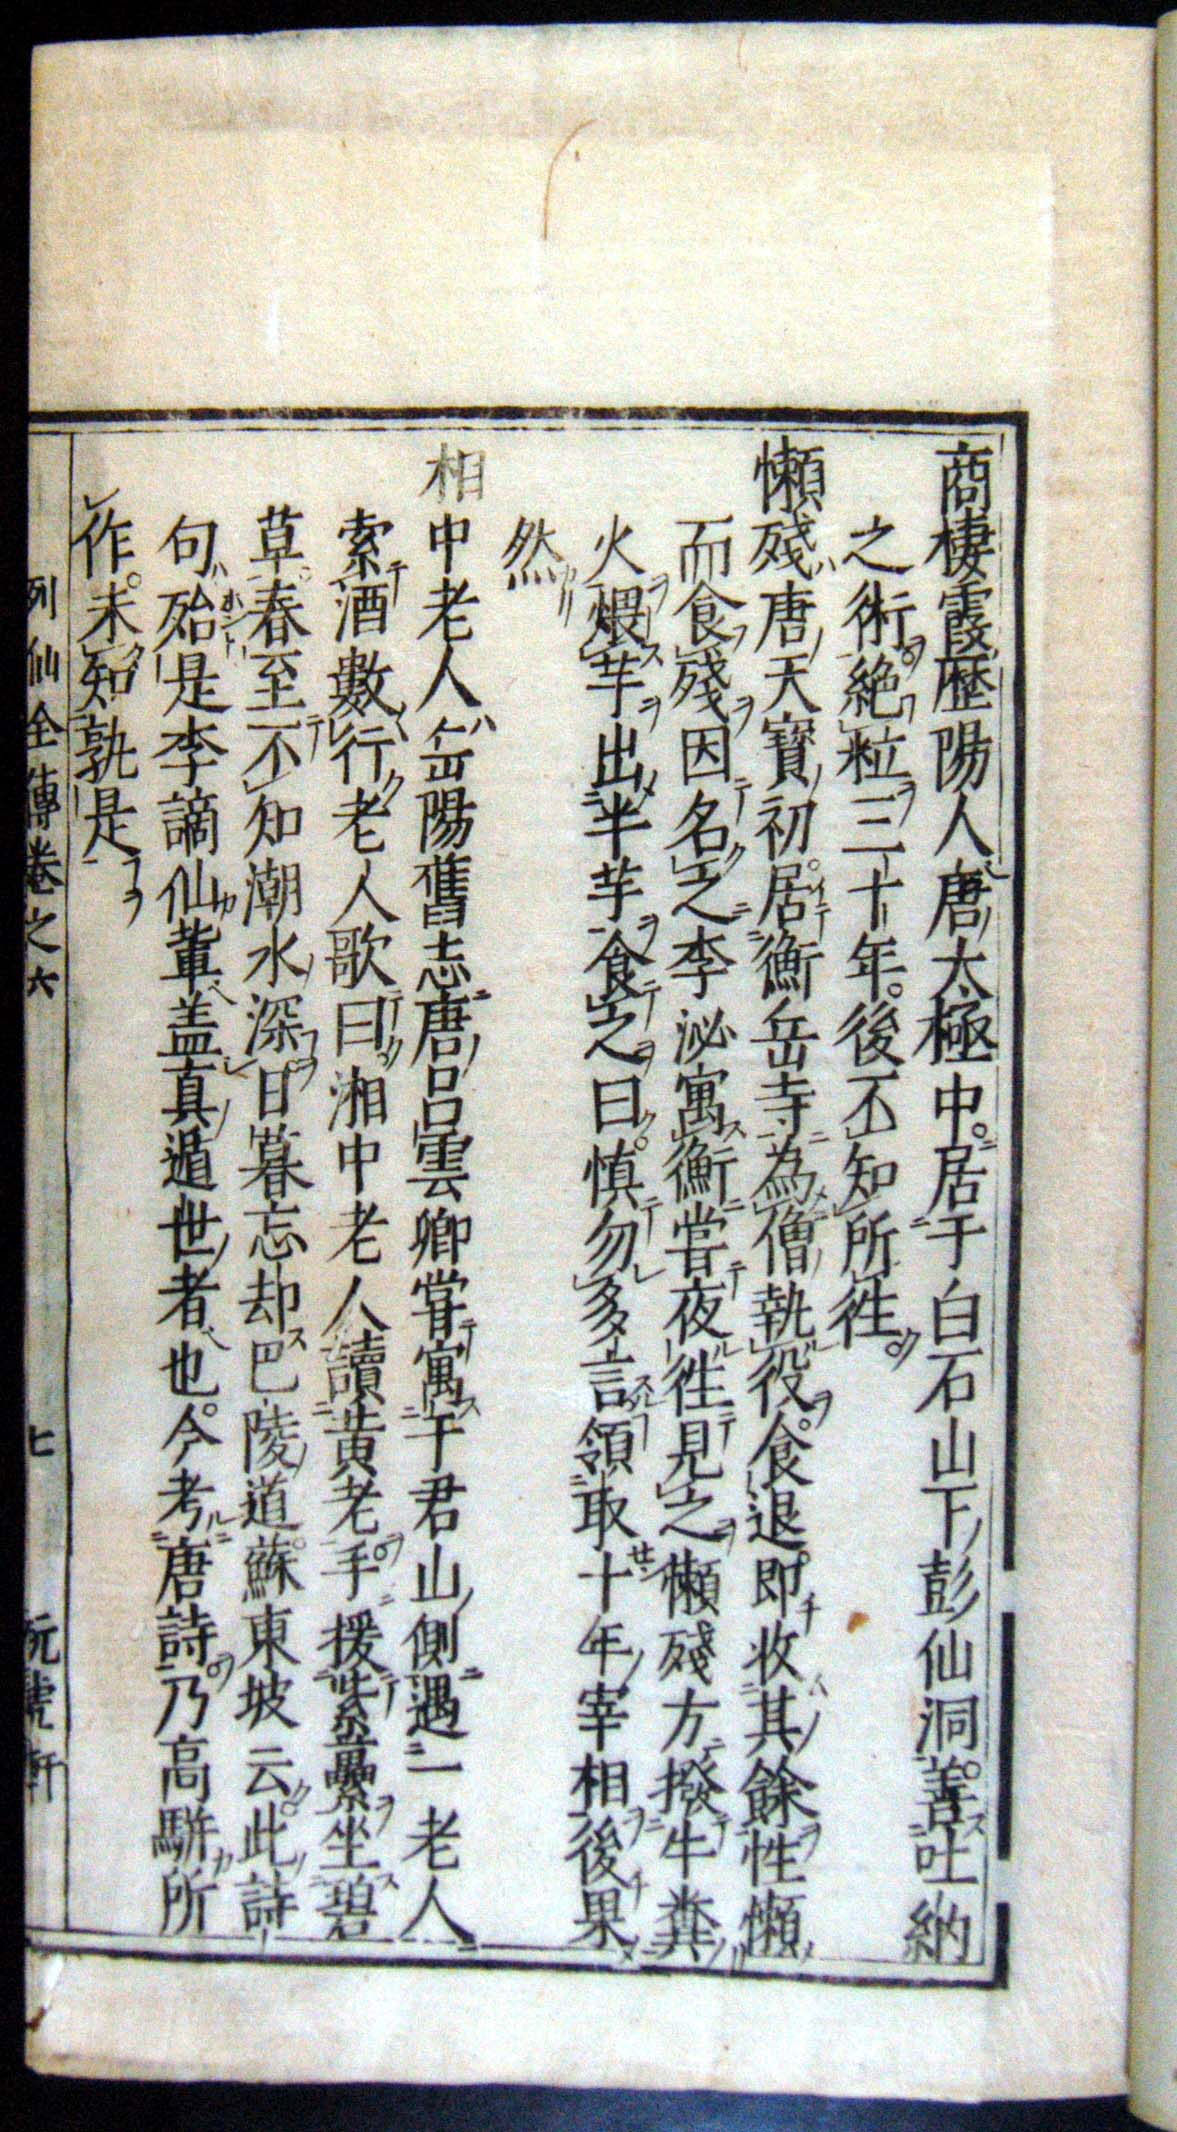 商棲霞歷陽人唐太極中居于白石山下彭仙洞善吐納
之術絶粒三十年後不知所徃
懶殘唐天寳初居衡岳寺為僧執役食退即收其餘性懶
而食殘因名之李泌寓衡嘗夜徃見之懶殘方撥牛糞
火煨芋出半芋食之曰慎勿多言領取十年宰相後果
然
相中老人岳陽舊志唐呂雲卿甞寓于君山側遇一老人
索酒數行老人歌曰湘中老人讀黄老手援紫虆坐碧
草春至不知潮水深日暮忘却巴陵道蘇東坡云此詩
句殆是李謫仙軰盖真遁世者也今考唐詩乃高駢所
作未知孰是
列仙全傳卷之六 七 玩虎軒